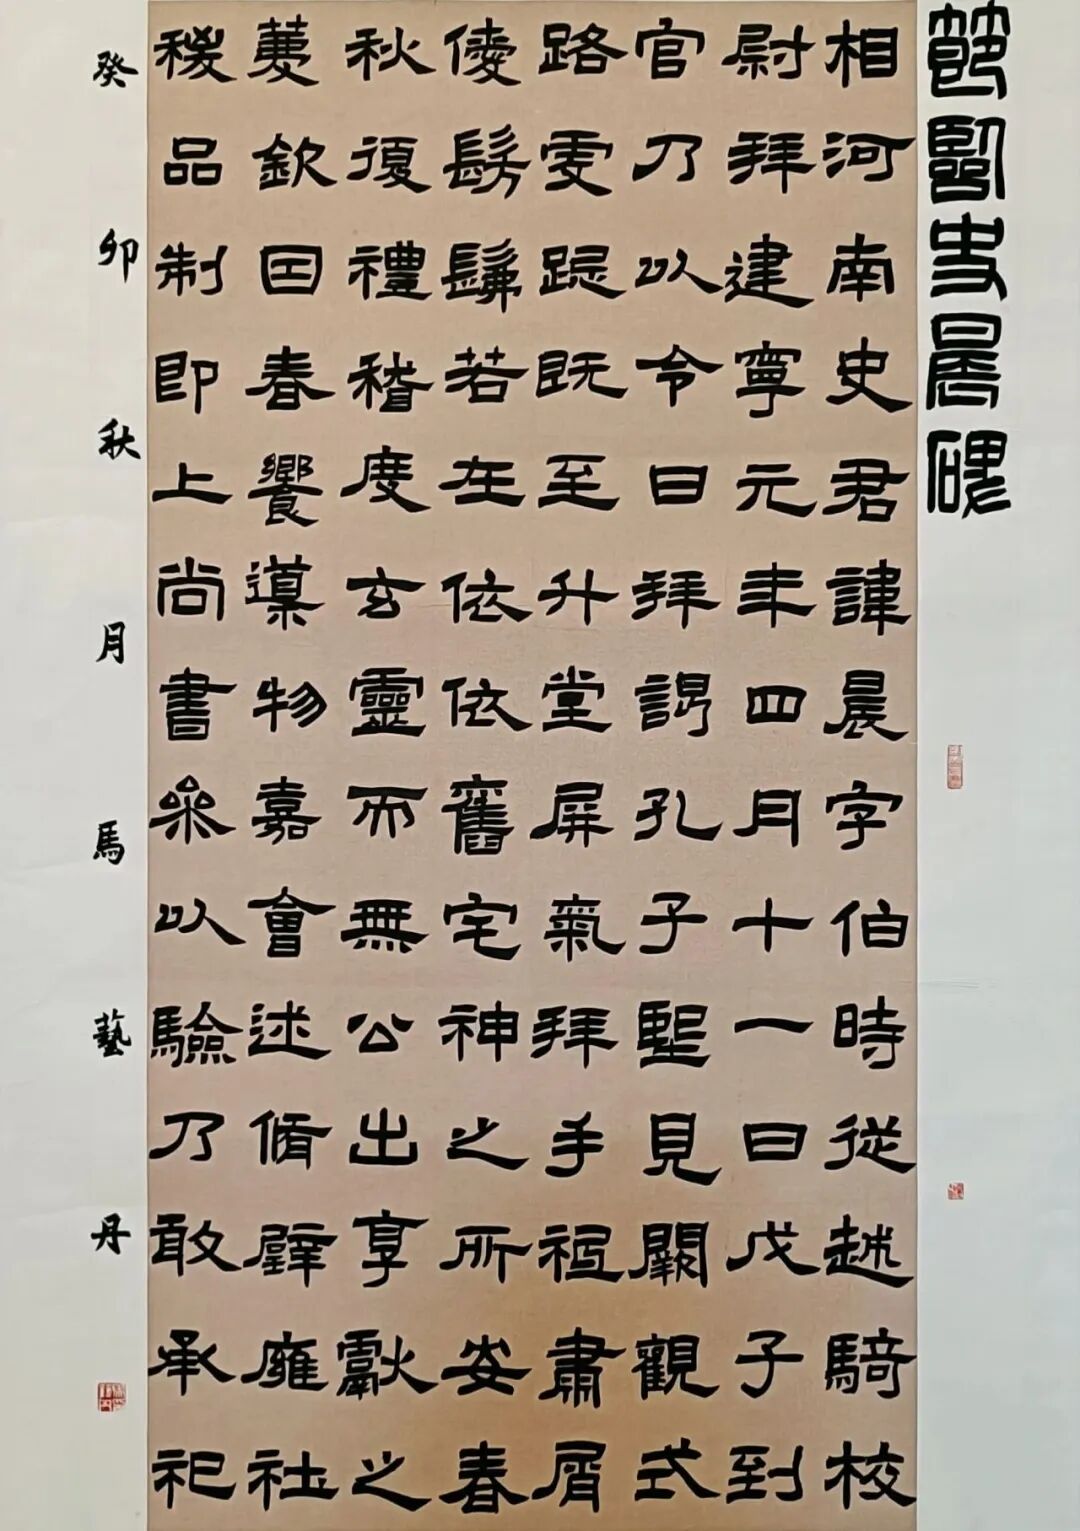 節臨史晨碑
相河南史君諱晨字伯時從越騎校
尉拜建寧元年四月十一日戊子到
官乃以令日拜謁孔子望見闕觀式
路虔跽既至升堂屏氣拜手祗肅屑
僾髣髴若在依依舊宅神之所安春
秋復禮稽度玄靈而無公出享獻之
薦欽因春饗導物嘉會述脩辟雍社
稷品制即上尚書參以驗乃敢承祀
癸卯秋月馬藝丹